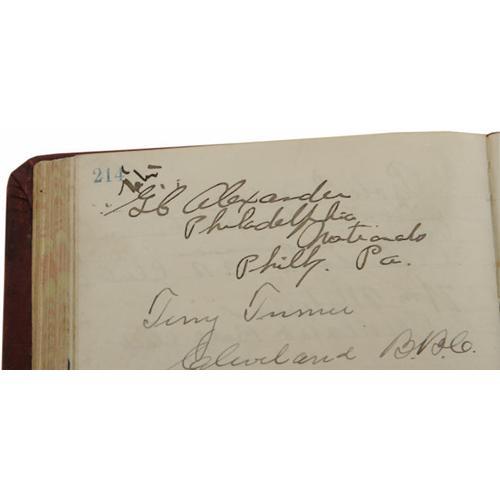 214
G C Alexander
Philadelphia
Nationals
Phila. Pa.
Terry Turner
Cleveland B.B.C.